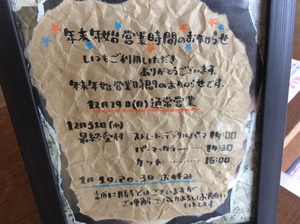 年末年始営業時間のお知らせ
いつもご利用いただき
ありがとうございます。
年末年始営業時間のお知らせです。
12月29日(月)通常営業
12月31日(水)
最終受付 ストレート・デジタルパーマ 14:00
パーマ・カラー 14:30
カット 16:00
1月1.2.3 お休み
ご理解ご協力よろしくお願い
いたします。